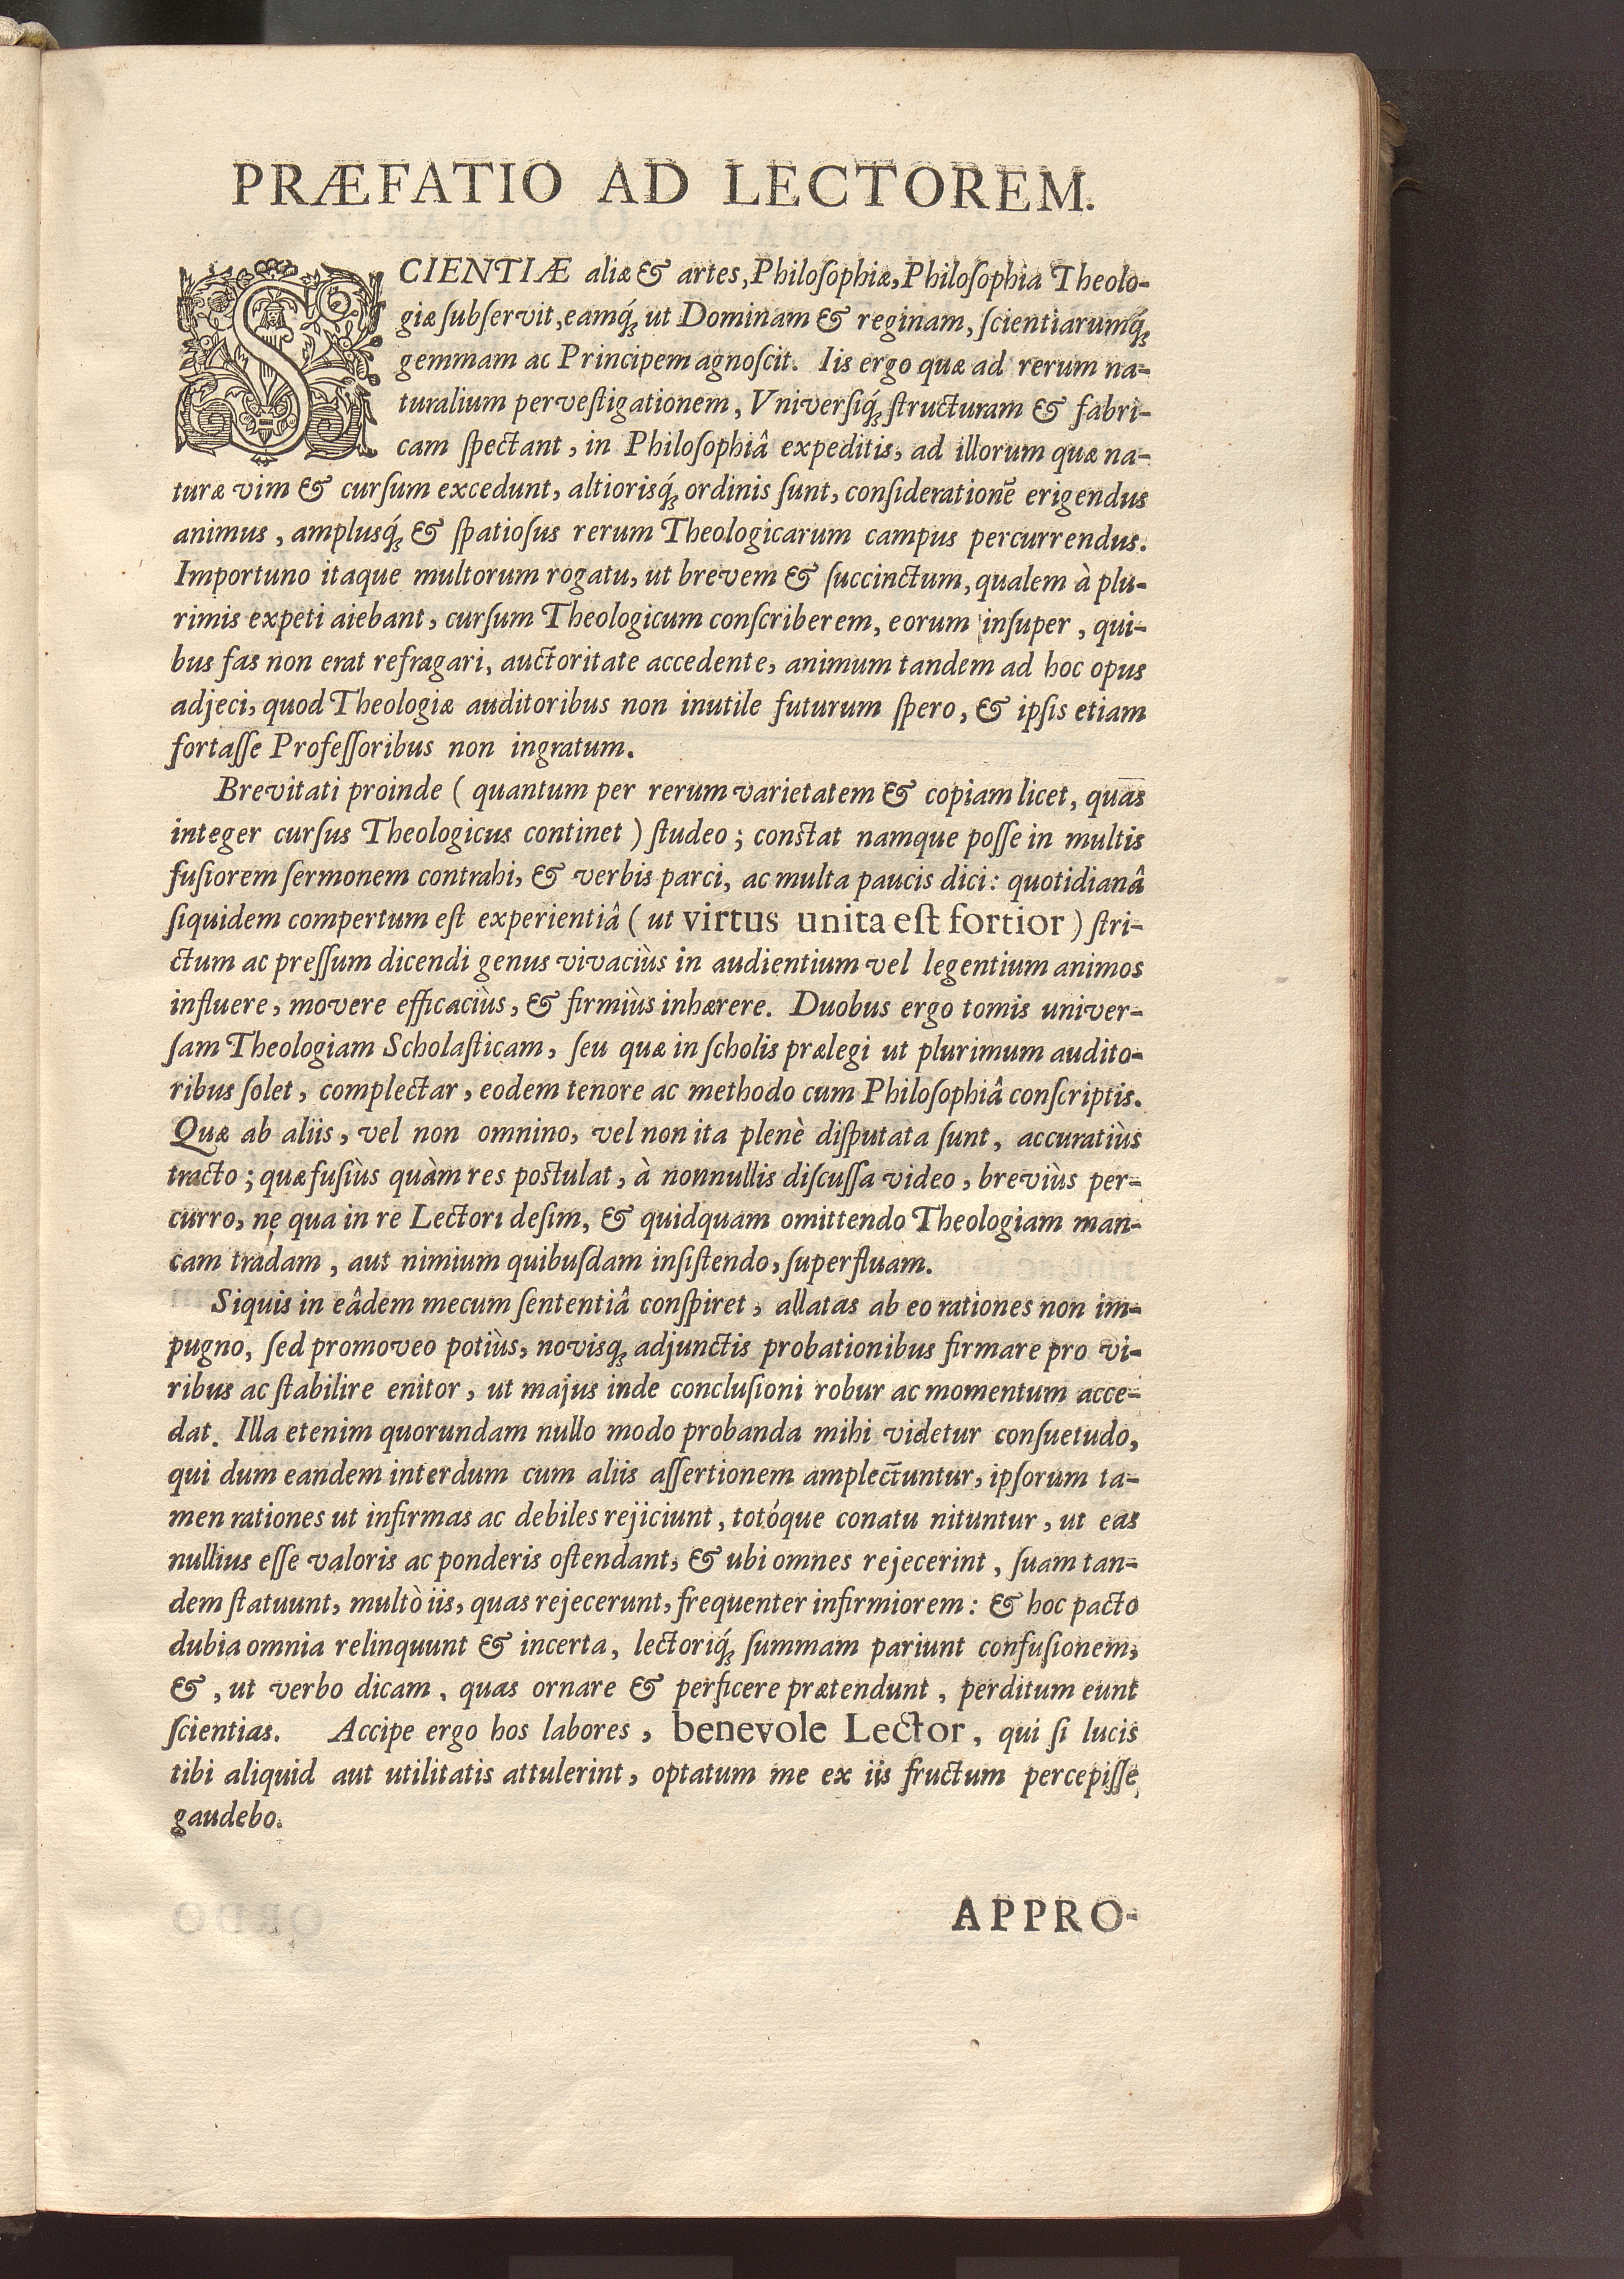 PRÆFATIO AD LECTOREM.
SCIENTIÆ aliæ & artes, Philoſophiæ, Philoſophia Theolo-
giæ ſubſervit, eamq́; ut Dominam & reginam, ſcientiarumq́;
gemmam ac Principem agnoſcit. Iis ergo quæ ad rerum na-
turalium perveſtigationem, Vniverſiq́; ſtructuram & fabri-
cam ſpectant, in Philoſophiâ expeditis, ad illorum quæ na-
turæ vim & curſum excedunt, altiorisq́; ordinis ſunt, conſiderationē erigendus
animus, amplusq́; & ſpatioſus rerum Theologicarum campus percurrendus.
Importuno itaque multorum rogatu, ut brevem & ſuccinctum, qualem à plu-
rimis expeti aiebant, curſum Theologicum conſcriberem, eorum inſuper, qui-
bus fas non erat refragari, auctoritate accedente, animum tandem ad hoc opus
adjeci, quod Theologiæ auditoribus non inutile futurum ſpero, & ipſis etiam
fortaſſe Profeſſoribus non ingratum.
Brevitati proinde ( quantum per rerum varietatem & copiam licet, quas
integer curſus Theologicus continet ) ſtudeo; conſtat namque poſſe in multis
fuſiorem ſermonem contrahi, & verbis parci, ac multa paucis dici: quotidianâ
ſiquidem compertum eſt experientiâ ( ut virtus unita eſt fortior ) ſtri-
ctum ac preſſum dicendi genus vivaciùs in audientium vel legentium animos
influere, movere efficaciùs, & firmiùs inhærere. Duobus ergo tomis univer-
ſam Theologiam Scholaſticam, ſeu quæ in ſcholis prælegi ut plurimum audito-
ribus ſolet, complectar, eodem tenore ac methodo cum Philoſophiâ conſcriptis.
Quæ ab aliis, vel non omnino, vel non ita plenè diſputata ſunt, accuratiùs
tracto; quæ fuſiùs quàm res poſtulat, à nonnullis diſcuſſa video, breviùs per-
curro, ne qua in re Lectori deſim, & quidquam omittendo Theologiam man-
cam tradam, aut nimium quibuſdam inſiſtendo, ſuperfluam.
Siquis in eâdem mecum ſententiâ conſpiret, allatas ab eo rationes non im-
pugno, ſed promoveo potiùs, novisq; adjunctis probationibus firmare pro vi-
ribus ac ſtabilire enitor, ut majus inde concluſioni robur ac momentum acce-
dat. Illa etenim quorundam nullo modo probanda mihi videtur conſuetudo,
qui dum eandem interdum cum aliis aſſertionem amplectuntur, ipſorum ta-
men rationes ut infirmas ac debiles rejiciunt, totóque conatu nituntur, ut eas
nullius eſſe valoris ac ponderis oſtendant, & ubi omnes rejecerint, ſuam tan-
dem ſtatuunt, multò iis, quas rejecerunt, frequenter infirmiorem: & hoc pacto
dubia omnia relinquunt & incerta, lectoriq́; ſummam pariunt confuſionem,
&, ut verbo dicam, quas ornare & perficere prætendunt, perditum eunt
ſcientias. Accipe ergo hos labores, benevole Lector, qui ſi lucis
tibi aliquid aut utilitatis attulerint, optatum me ex iis fructum percepiſſe
gaudebo.
APPRO-